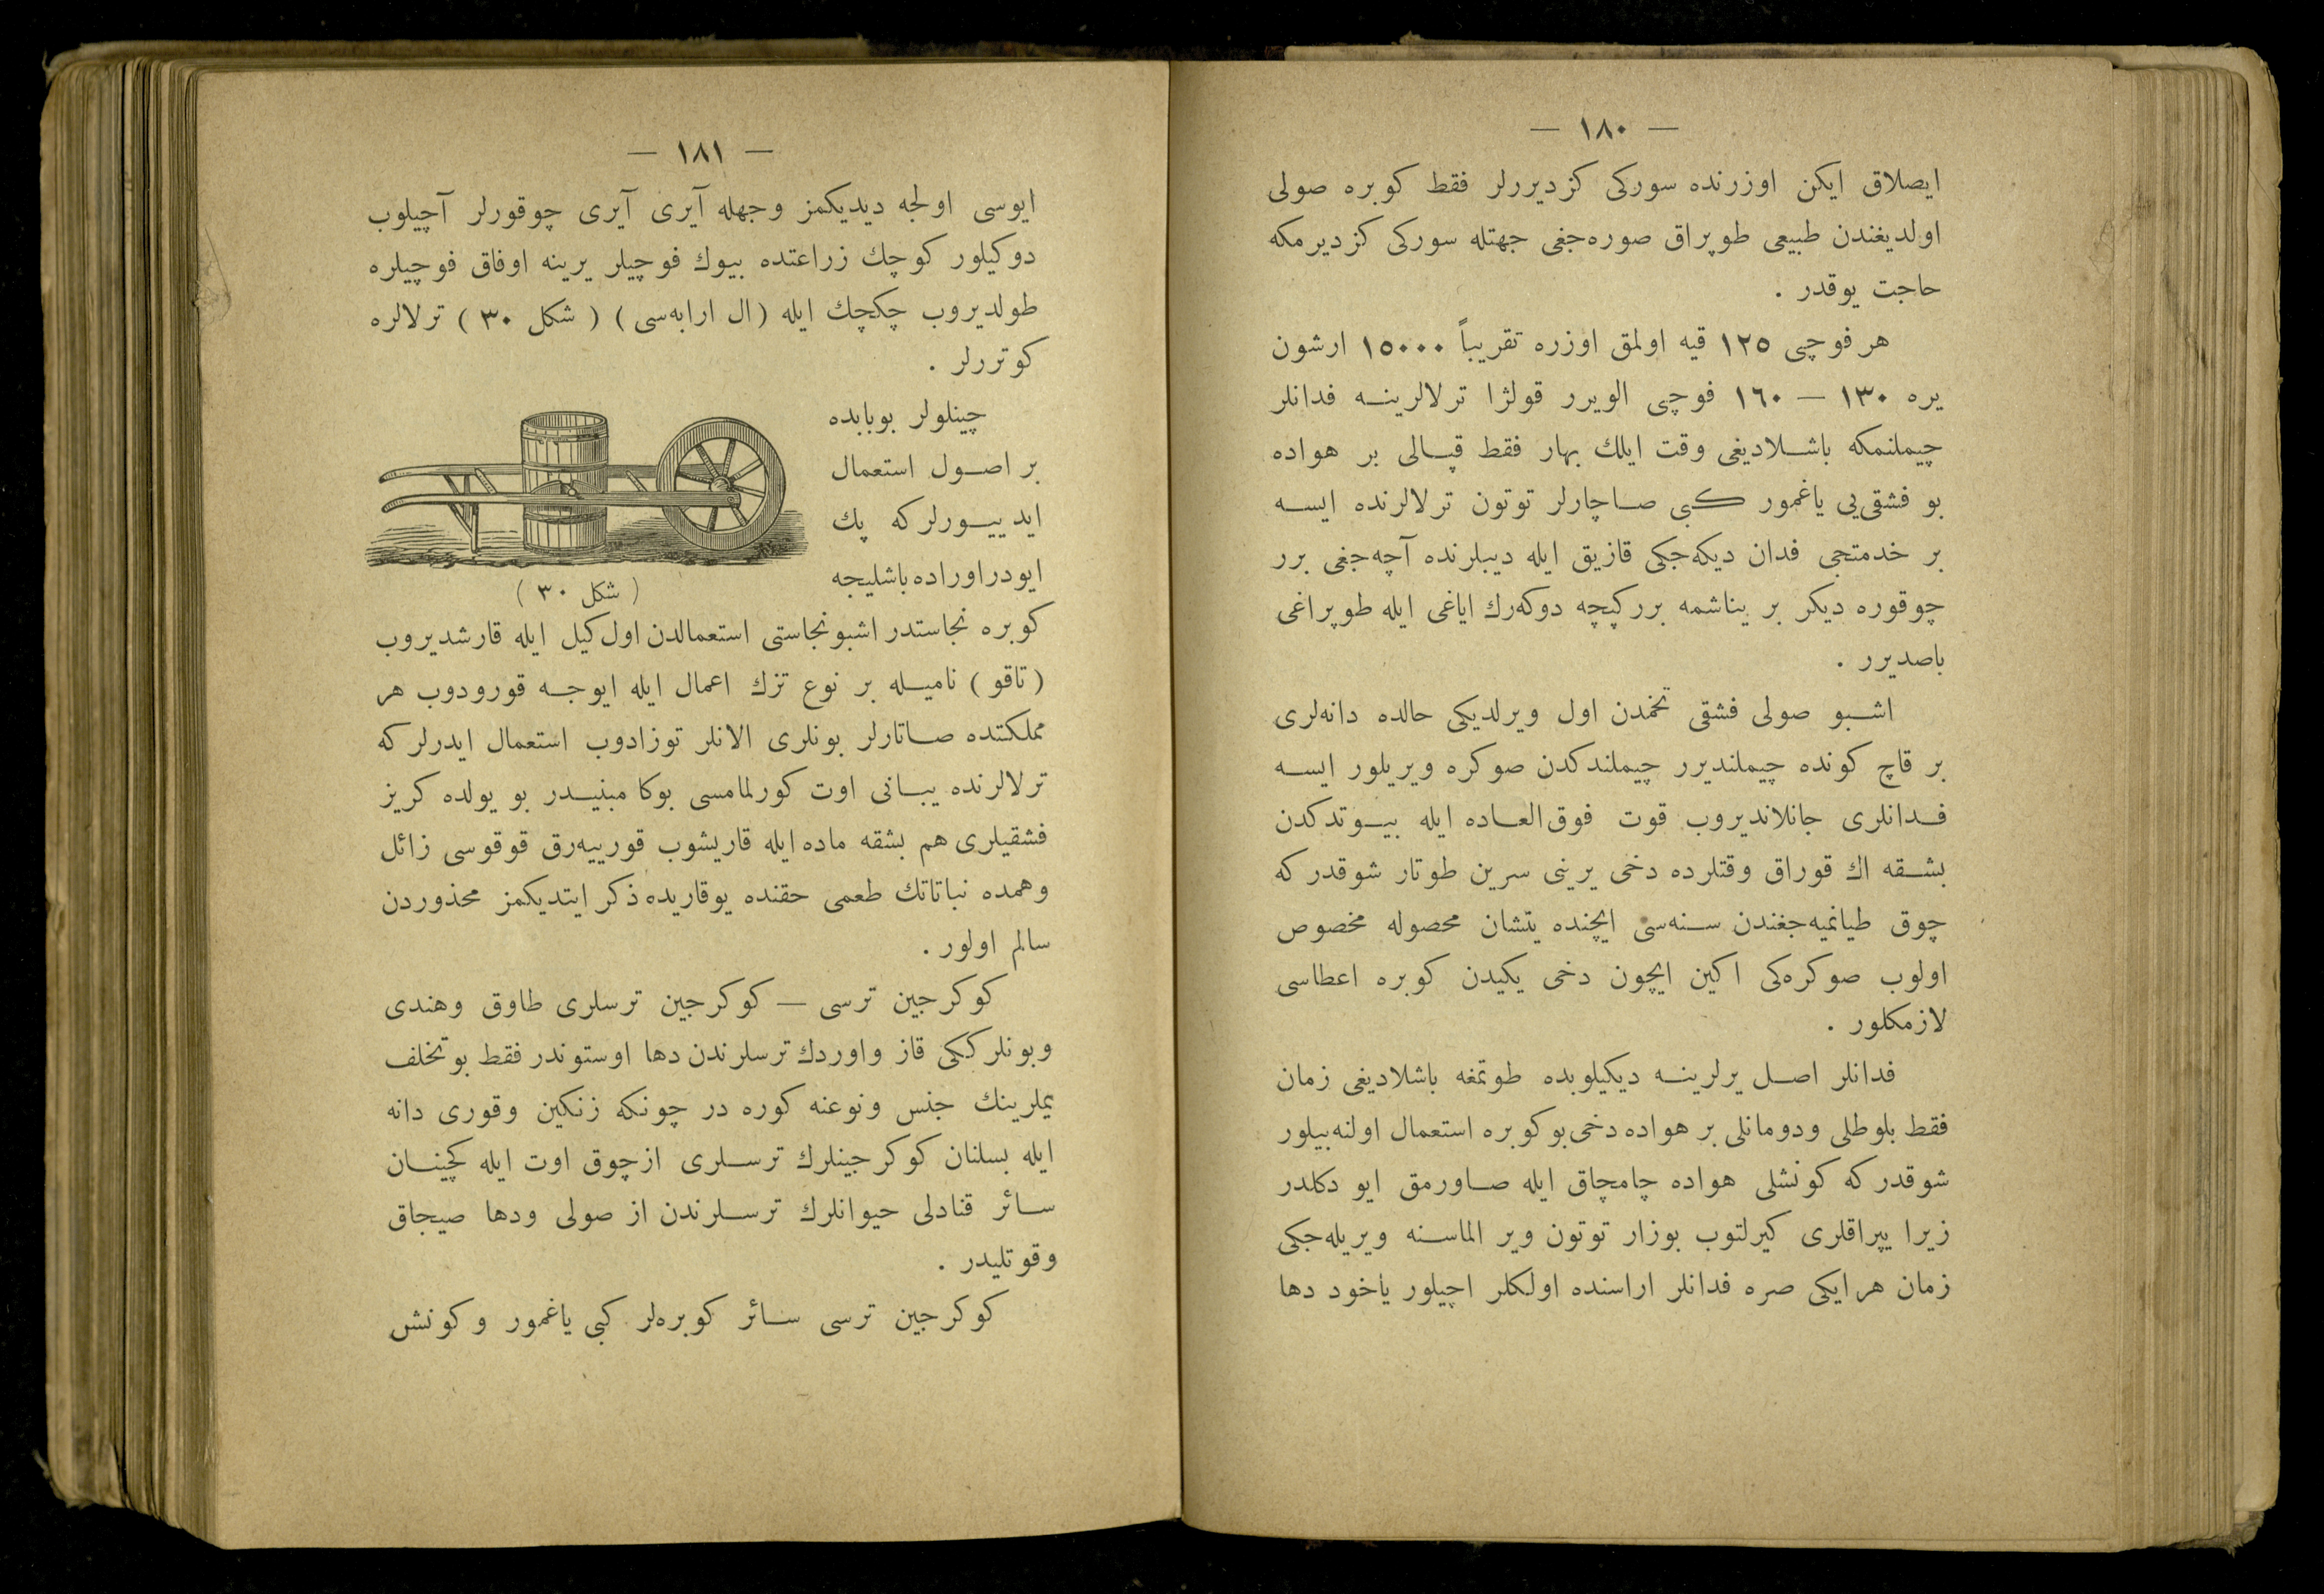 — ١٨٠ —
ايصلاق ايكن اوزرنده سوركى كزديررلر فقط كوبره صولى
اولديغندن طبيعى طوپراق صوره‌جغى جهتله سوركى كزديرمكه
حاجت يوقدر .
هر فوچى ١٢٥ قيه اولمق اوزره تقريباً ١٥٠٠٠ ارشون
يره ١٣٠ — ١٦٠ فوچى الويرر قولزا ترلالرينه فدانلر
چيملنمكه باشلاديغى وقت ايلك بهار فقط قپالى بر هواده
بو فشقى‌يى ياغمور كبى صاچارلر توتون ترلالرنده ايسه
بر خدمتجى فدان ديكه‌جكى قازيق ايله ديبلرنده آچه‌جغى برر
چوقوره ديكر بر يناشمه برر كپچه دوكه‌رك اياغى ايله طوپراغى
باصديرر .
اشبو صولى فشقى تخمدن اول ويرلديكى حالده دانه‌لرى
بر قاچ كونده چيملنديرر چيملندكدن صوكره ويريلور ايسه
فدانلرى جانلانديروب قوت فوق‌العاده ايله بيوتدكدن
بشقه اك قوراق وقتلرده دخى يرينى سرين طوتار شوقدركه
چوق طيانميه‌جغندن سنه‌سى ايچنده يتشان محصوله مخصوص
اولوب صوكره‌كى اكين ايچون دخى يكيدن كوبره اعطاسى
لازمكلور .
فدانلر اصل يرلرينه ديكيلوبده طوتمغه باشلاديغى زمان
فقط بلوطلى ودومانلى بر هواده دخى بو كوبره استعمال اولنه‌بيلور
شوقدركه كونشلى هواده چامچاق ايله صاورمق ايو دكلدر
زيرا يپراقلرى كيرلتوب بوزار توتون وير الماسنه ويريله‌جكى
زمان هر ايكى صره فدانلر اراسنده اولكلر اچيلور ياخود دها
— ١٨١ —
ايوسى اولجه ديديكمز وجهله آيرى آيرى چوقورلر آچيلوب
دوكيلور كوچك زراعتده بيوك فوچيلر يرينه اوفاق فوچيلره
طولديروب چكچك ايله (ال ارابه‌سى) ( شكل ٣٠ ) ترلالره
كوتررلر .
چينلولر بوبابده
بر اصول استعمال
ايدييورلركه پك
ايودر اوراده باشليجه
( شكل ٣٠ )
كوبره نجاستدر اشبو نجاستى استعمالدن اول كيل ايله قارشديروب
( تاقو ) ناميله بر نوع تزك اعمال ايله ايوجه قورودوب هر
مملكتده صاتارلر بونلرى الانلر توزادوب استعمال ايدرلركه
ترلالرنده يبانى اوت كورلمامسى بوكا مبنيدر بو يولده كريز
فشقيلرى هم بشقه ماده ايله قاريشوب قورييه‌رق قوقوسى زائل
وهمده نباتاتك طعمى حقنده يوقاريده ذكر ايتديكمز محذوردن
سالم اولور .
كوكرجين ترسى — كوكرجين ترسلرى طاوق وهندى
وبونلركى قاز واوردك ترسلرندن دها اوستوندر فقط بو تخلف
يملرينك جنس ونوعنه كوره در چونكه زنكين وقورى دانه
ايله بسلنان كوكرجينلرك ترسلرى از چوق اوت ايله كچينان
سائر قنادلى حيوانلرك ترسلرندن از صولى ودها صيجاق
وقوتليدر .
كوكرجين ترسى سائر كوبره‌لر كبى ياغمور وكونش